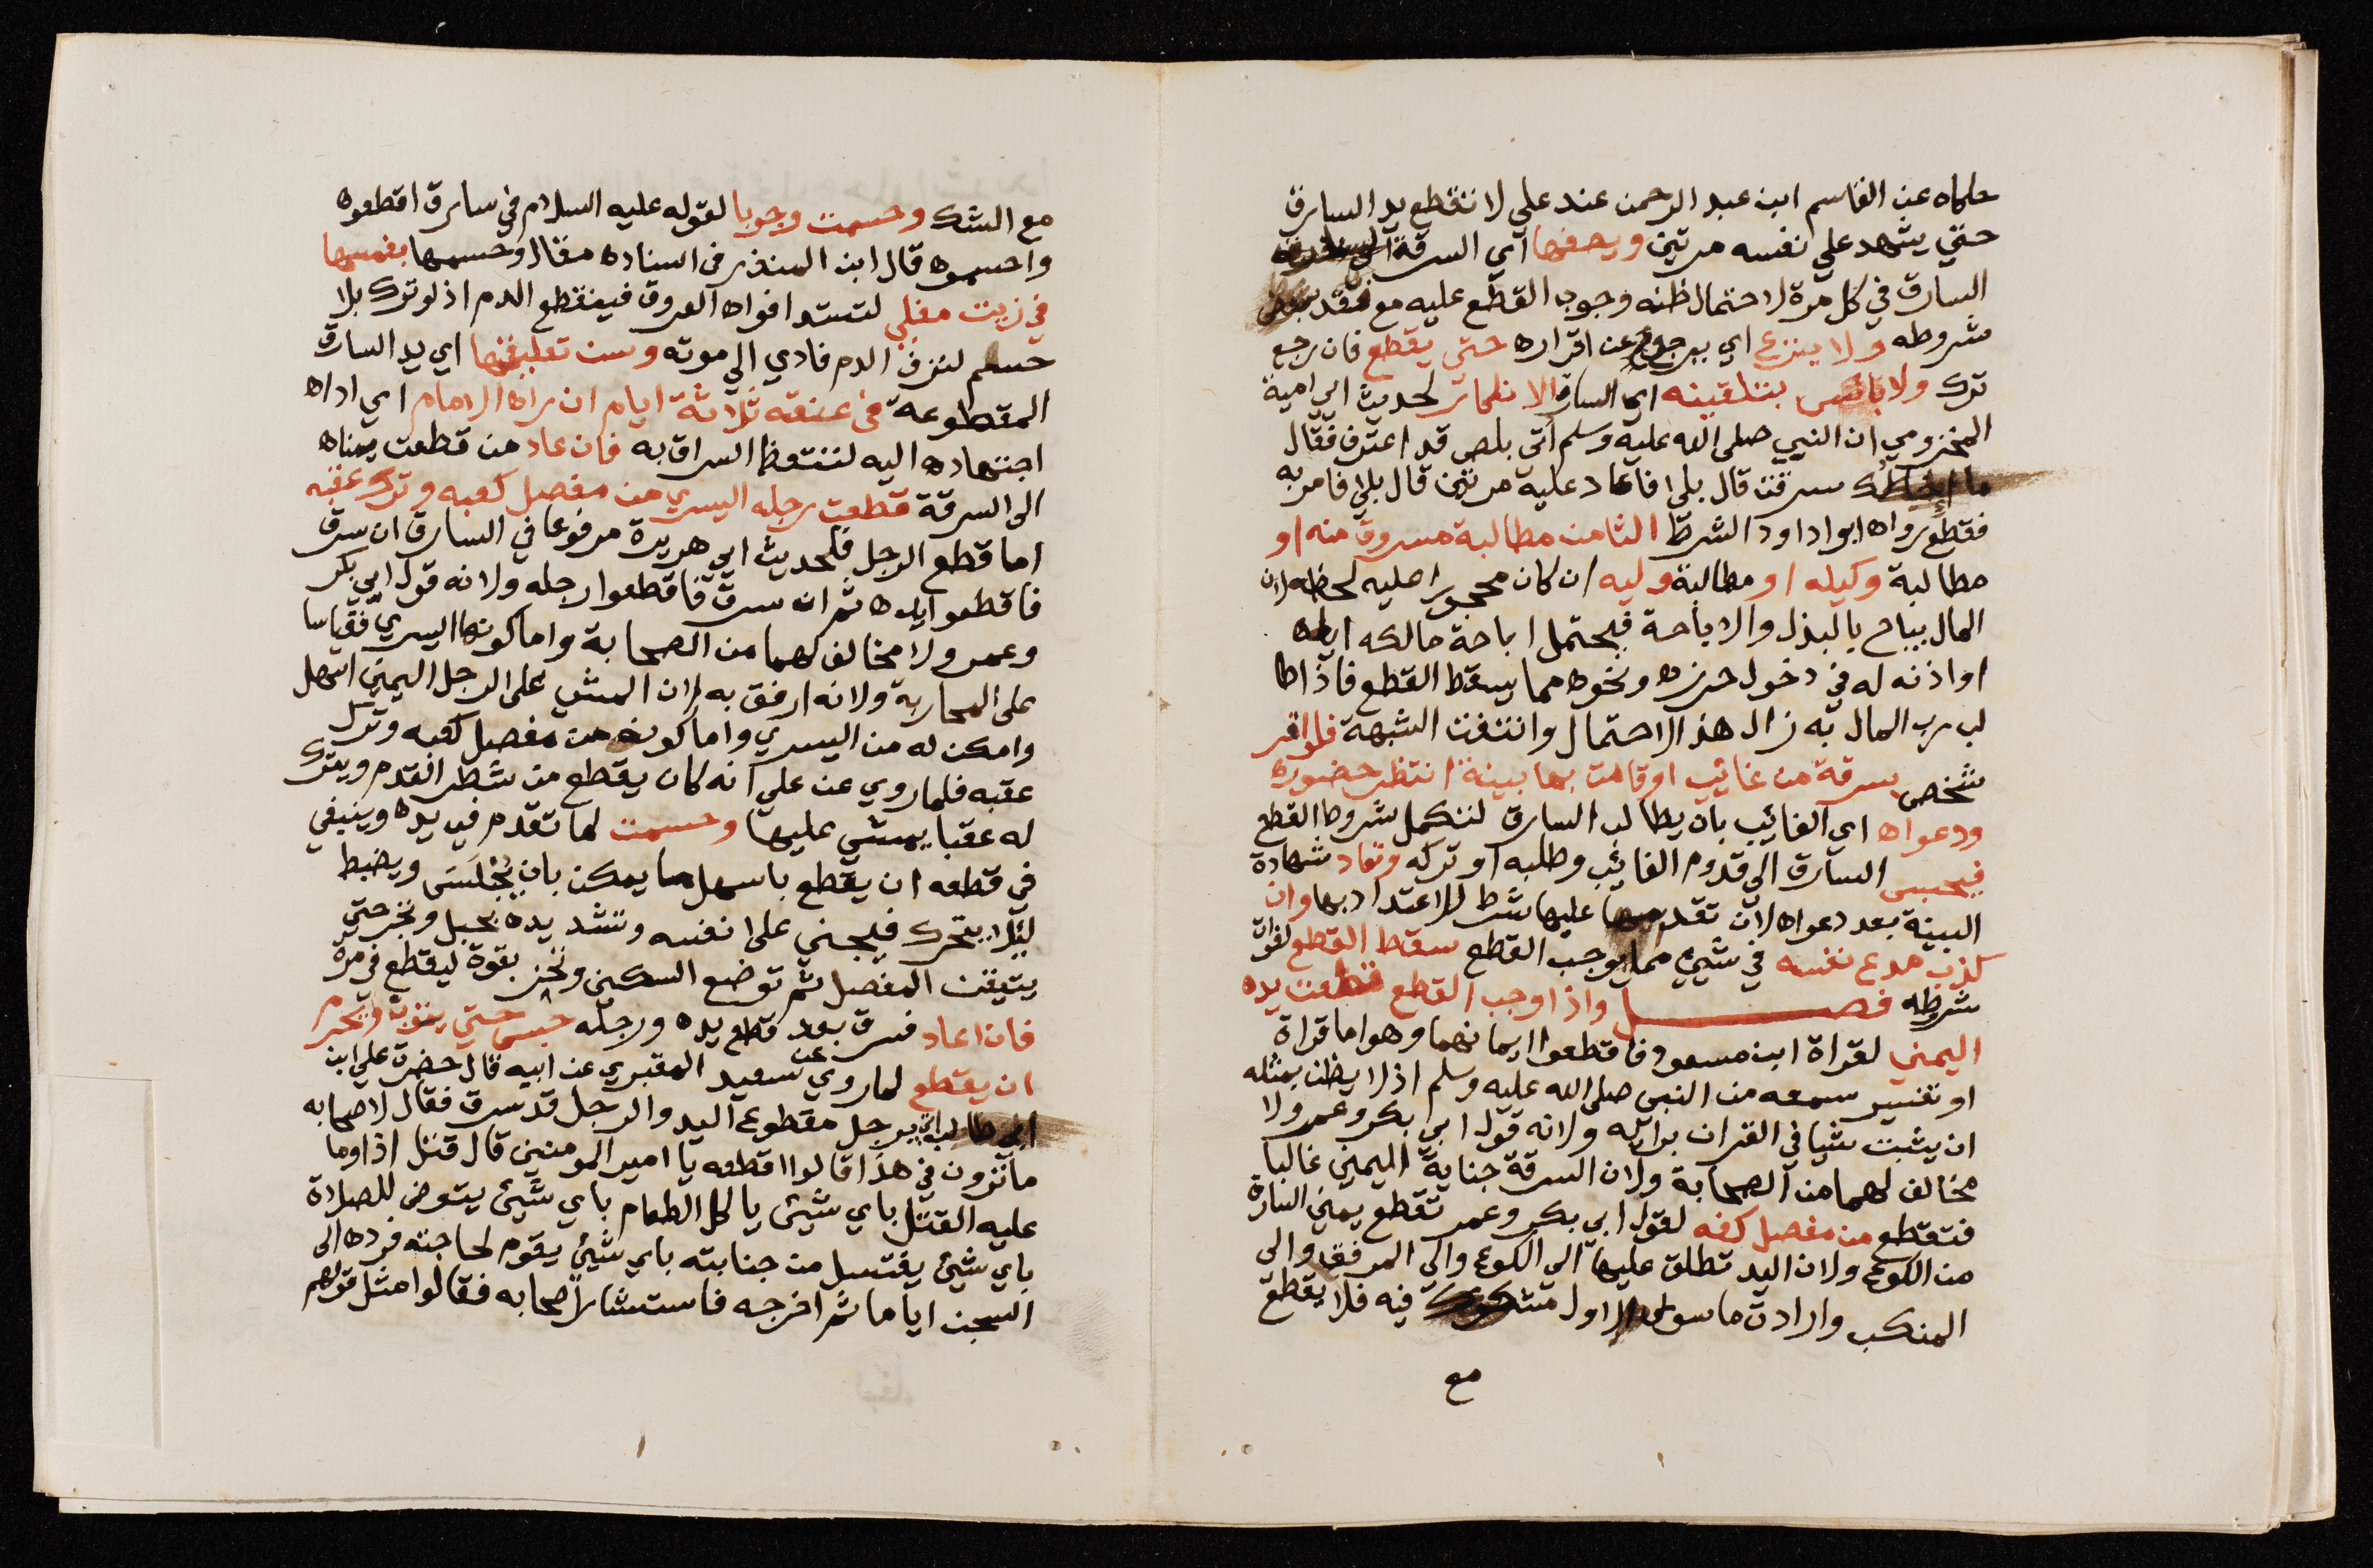 حكاه عن القاسم ابن عبد الرحمن عند علي لا تقطع يد السارق
حتي يشهد علي نفسه مرتين ويصفها اي السرقة
السارق في كل مرة لاحتمال ظنه وجوب القطع عليه مع فقد بعض
شروطه ولا ينزع اي يرجع عن اقراره حتي يقطع فان رجع
ترك ولا باس بتلقينه اي السارق الانكار لحديث ابي امية
المخزومي ان النبي صلي الله عليه وسلم اتي بلص قد اعترف فقال
ما إخالك سرقت قال بلي فاعاد عليه مرتين قال بلي فامر به
فقطع رواه ابو اداود الشرط الثامن مطالبة مسروق منه او
مطالبة وكيله او مطالبة وليه ان كان محجورا عليه لحظه لان
المال يباح بالبذل والاباحة فيحتمل اباحة مالكه اياه
او اذنه له في دخول حرزه ونحوه مما يسقط القطع فاذا طا
لب رب المال به زال هذا الاحتمال وانتفت الشبهة فلو اقر
شخص بسرقة من غائب او قامت بها بينة انتظر حضوره
ودعواه اي الغائب بان يطالب السارق لتكمل شروط القطع
فيحبس السارق الي قدوم الغائب وطلبه او تركه وتعاد شهادة
البينة بعد دعواه لان تقدمها عليها شرط للاعتداد بها وان
كذب مدع نفسه في شيئ مما يوجب القطع سقط القطع لفوات
شروطه فصل واذا وجب القطع قطعت يده
اليمني لقراة ابن مسعود فاقطعوا ايمانهما وهو اما قراة
او تفسير سمعه من النبي صلي الله عليه وسلم اذ لا يظن بمثله
ان يثبت شيا في القران برايه ولانه قول ابي بكر وعمر ولا
مخالف لهما من الصحابة ولان السرقة جناية اليمني غالبا
فتقطع من مفصل كفه لقول ابي بكر وعمر تقطع يمني السارق
من الكوع ولان اليد تطلق عليها الي الكوع والي المرفق والي
المنكب وارادت ما سوي الاول مشكوك فيه فلا يقطع
مع
مع الشك وحسمت وجوبا لقوله عليه السلام في سارق اقطعوه
واحسموه قال ابن المنذر في اسناده مقال وحسمها بغمسها
في زيت مغلي لتستد افواه العروق فينقطع الدم اذ لو ترك بلا
حسم لنزف الدم فادي الي موته وسن تعليقها اي يد السارق
المقطوعة في عنقه ثلاثة ايام ان راه الامام اي اداه
اجتهاده اليه لتتعظ السراق به فان عاد من قطعت يمناه
الي السرقة قطعت رجله اليسري من مفصل كعبه وترك عقبه
اما قطع الرجل فلحديث ابي هريرة مرفوعا في السارق ان سرق
فاقطعوا يده ثم ان سرق فاقطعوا رجله ولانه قول ابي بكر
وعمر ولا مخالف لهما من الصحابة واما كونها اليسري فقياسا
علي المحاربة ولانه ارفق به لان المشي علي الرجل اليمني اسهل
وامكن له من اليسري واما كونه من مفصل كعبه وترك
عقبه فلما روي عن علي انه كان يقطع من شطر القدم ويترك
له عقبا يمشي عليها وحسمت لما تقدم في يده وينبغي
في قطعه ان يقطع باسهل ما يمكن بان يُجْلَسَ ويضبط
ليلا يتحرك فيجني علي نفسه وتشد يده بحبل وتجر حتي
يتيقن المفصل ثم توضع السكين وتجر بقوة ليقطع في مرة
فان اعاد فسرق بعد قطع يده ورجله حبس حتي يتوب ويحرم
ان يقطع لما روي عن سعيد المقبري عن ابيه قال حضرت علي ابن
ابي طالب اتي برجل مقطوع اليد والرجل قد سرق فقال لاصحابه
ما ترون في هذا قالوا اقطعه يا امير المومنين قال قتل اذا وما
عليه القتل باي شيئ ياكل الطعام باي شيئ يتوضي للصلاة
باي شيئ يغتسل من جنابته باي شيئ يقوم لحاجته فرده الي
السجن اياما ثم اخرجه فاستشار اصحابه فقالوا مثل قولهم